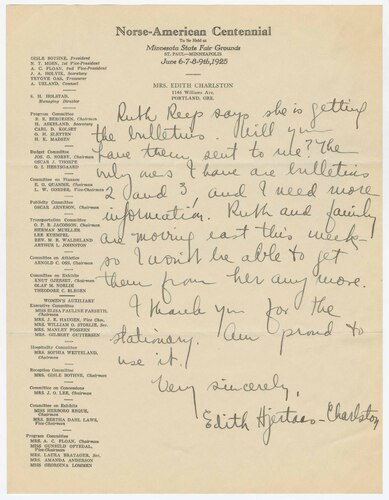 Norse-American Centennial
To be Held at
Minnesota State Fair Grounds
ST. PAUL—MINNEAPOLIS
June 6-7-8-9th, 1925
GISLE BOTHNE, President
N. T. MOEN, 1st Vice-President
A. C. FLOAN, 2nd Vice-President
J. A. HOLVIK, Secretary
TRYGVE OAS, Treasurer
A. UELAND, Counsel
S. H. HOLSTAD,
Managing Director
Program Committee
H. ASKELAND, Secretary
CARL D. KOLSET
O. H. SLETTEN
H. E. MADSEN
Budget Committee
JOS. G. NORBY, Chairman
OSCAR J. THORPE
G. I. HERTSGAARD
Committee on Finance
E. G. QUAMME, Chairman
Publicity Committee
OSCAR ARNESON, Chairman
Transportation Committee
O. P. B. JACOBSON, Chairman
HERMAN MUELLER
LEE KUEMPEL
REV. M. E. WALDELAND
ARTHUR L. JOHNSTON
Committee on Athletics
ARNOLD C. OSS, Chairman
Committee on Exhibits
KNUT GJERSET, Chairman
OLAF M. NORLIE
THEODORE C. BLEGEN
WOMEN'S AUXILIARY
Executive Committee
MISS ELISA PAULINE FARSETH,
Chairman
MRS. J. E. HAUGEN, Vice Chm.
MRS. WILLIAM O. STORLIE, Sec.
MRS. MANLEY FOSSEEN
MRS. GILBERT GUTTERSEN
Hospitality Committee
Chairman
Reception Committee
MRS. GISLE BOTHNE, Chairman
Committee on Concessions
MRS. J. O. LEE, Chairman
Committee on Exhibits
MISS HERBORG REQUE,
Chairman
MRS. BERTHA DAHL LAWS,
Vice-Chairman
Program Committee
MRS. A. C. FLOAN, Chairman
MISS GUNHILD OFTEDAL,
Vice-Chairman
MRS. LAURA BRATAGER, Sec.
MRS. AMANDA ANDERSON
MISS GEORGINA LOMMEN
MRS. EDITH CHARLSTON
1146 Williams Ave,
PORTLAND, ORE.
Ruth Reep says she is getting
the bulletins. Will you
have them sent to me? The
only ones I have are bulletins
2 and 3, and I need more
information. Ruth and family
are moving east this week
so I won't be able to get
them from her any more.
I thank you for the
stationary. Am proud to
use it.
Very sincerely,
Edith Hjertaas-Charlston